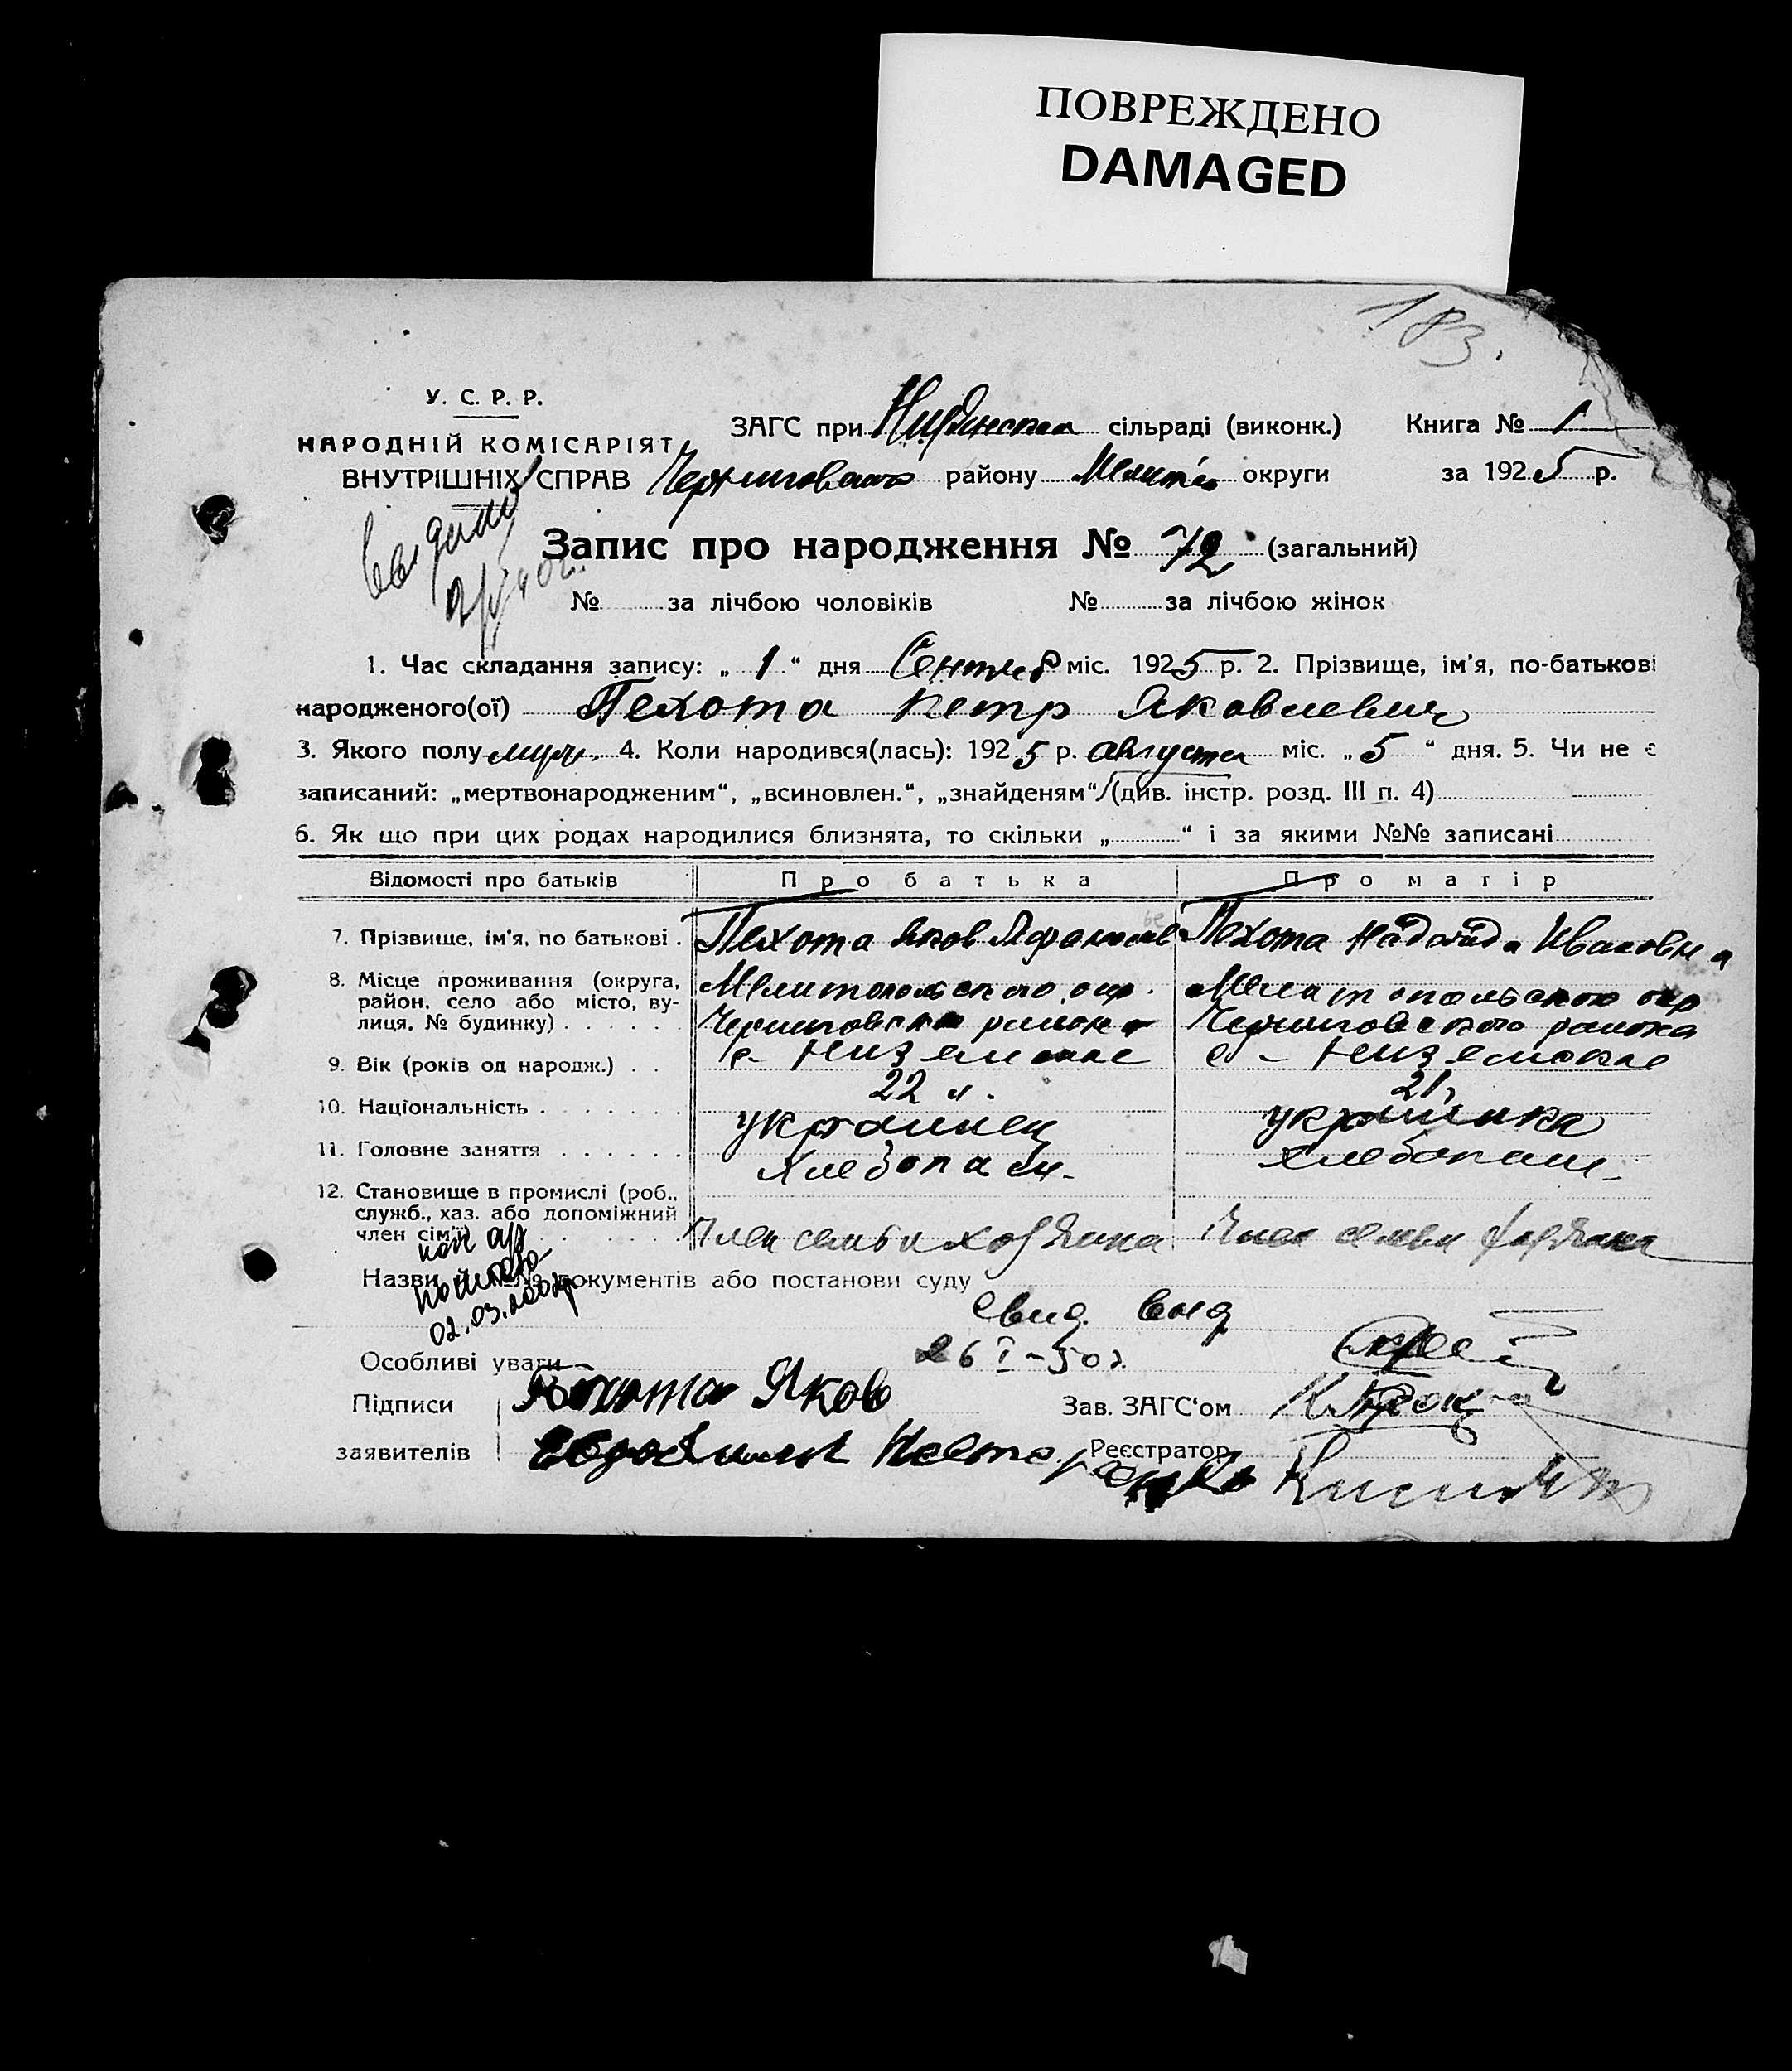 ПОВРЕЖДЕНО
DAMAGED
183.
У. С. Р. Р.
НАРОДНІЙ КОМІСАРІЯТ
ВНУТРІШНІХ СПРАВ
ЗАГС при сільраді (виконк.) Книга № 1
району округи за 1925 р.
Запис про народження № 72 (загальний)
№ за лічбою чоловіків № за лічбою жінок
1. Час складання запису: „ 1 “ дня Сентяб міс. 1925 р. 2. Прізвище, ім'я, по-батькові
народженого(ої) Пехота Петр Яковлевич
3. Якого полу муж. 4. Коли народився(лась): 1925 р. августа міс. „ 5 “ дня. 5. Чи не є
записаний: „мертвонародженим“, „всиновлен.“, „знайденям“ (див. інстр. розд. III п. 4)
6. Як що при цих родах народилися близнята, то скільки „ “ і за якими №№ записані
Відомості про батьків Про батька Про матір
7. Прізвище, ім'я, по батькові . Пехота Яков Пехота Надежда Ивановна
8. Місце проживання (округа, район, село або місто, вулиця, № будинку) Мелитопольского окр. Мелитопольского окр
Черниговского района Черниговского района
с- с-
9. Вік (років од народж.) . . 22 21
10. Національність . украинец украинка
11. Головне заняття . хлебопаш- хлебопаш-
12. Становище в промислі (роб., служб., хаз. або допоміжний член сім'ї) Член семьи хозяина Член семьи хозяина
Назви й №№ документів або постанови суду
02.03.2002р
Свид. выд
26 I-50 г.
Особливі уваги
Підписи Пехота Яков Зав. ЗАГС'ом
заявителів Реєстратор